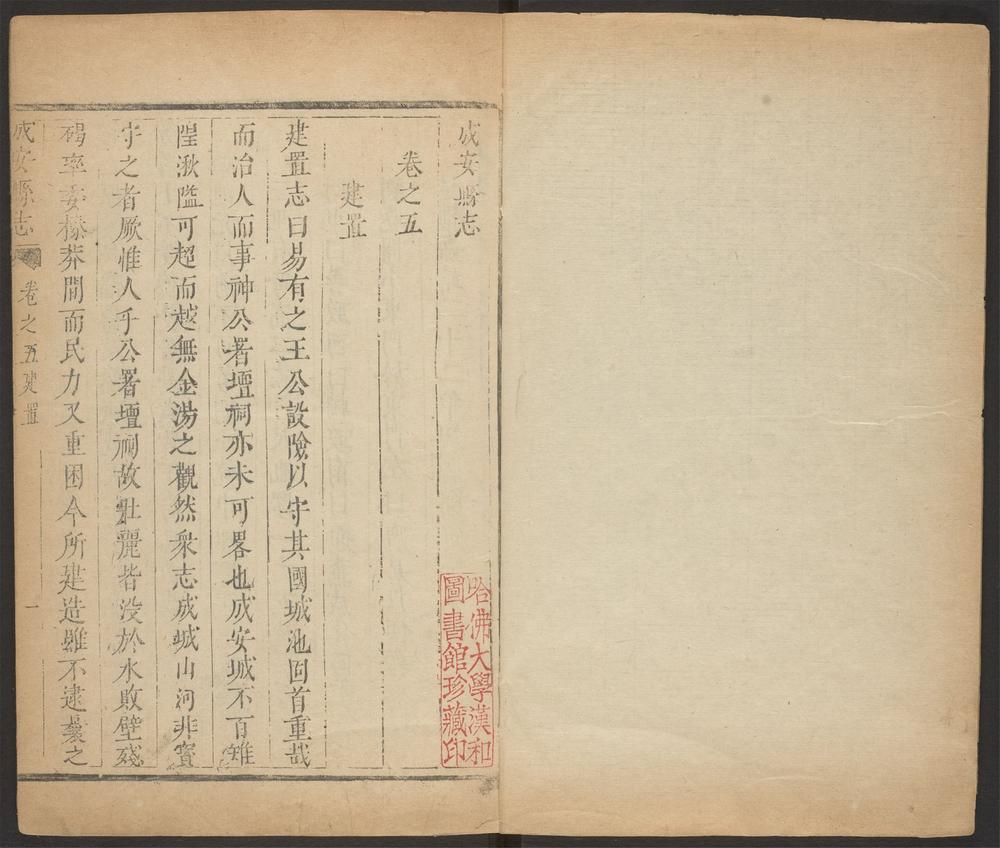 成安縣志
卷之五
建置
建置志曰易有之王公設險以守其國城池固首重哉
而治人而事神公署壇祠亦未可畧也成安城不百雉
隍湫隘可超而越無金湯之觀然衆志成城山河非寶
守之者厥惟人乎公署壇祠故壯麗皆没於水敗壁殘
碣率委榛莽間而民力又重困今所建造雖不逮曩之
成安縣志
卷之五建置
一
哈佛大學漢和
圖書館珍藏印